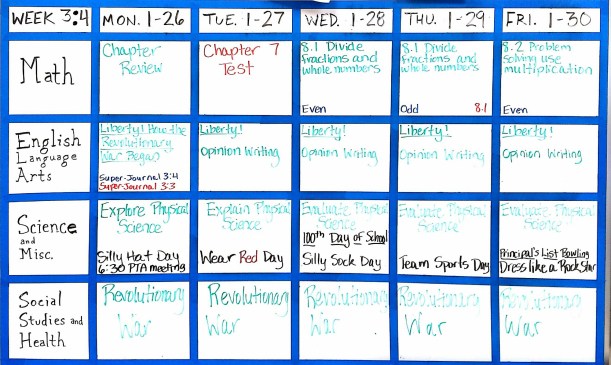 WEEK 3:4
MON. 1-26
TUE. 1-27
WED. 1-28
THU. 1-29
FRI. 1-30
Math
Chapter
Review
Chapter 7
Test
8.1 Divide
fractions and
whole numbers
Even
8.1 Divide
fractions and
whole numbers
Odd 8.1
8.2 Problem
solving use
multiplication
Even
English
Language
Arts
Liberty! How the
Revolutionary
War Began
Super-Journal 3:4
Super-Journal 3:3
Liberty!
Opinion Writing
Liberty!
Opinion Writing
Liberty!
Opinion Writing
Liberty!
Opinion Writing
Science
and
Misc.
Explore Physical
Science
Silly Hat Day
6:30 PTA meeting
Explain Physical
Science
Wear Red Day
Evaluate Physical
Science
100th Day of School
Silly Sock Day
Evaluate Physical
Science
Team Sports Day
Evaluate Physical
Science
Principal's List Bowling
Dress like a Rock Star
Social
Studies and
Health
Revolutionary
War
Revolutionary
War
Revolutionary
War
Revolutionary
War
Revolutionary
War